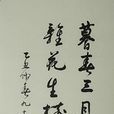 暮春三月
雜花生樹
乙丑仲春九